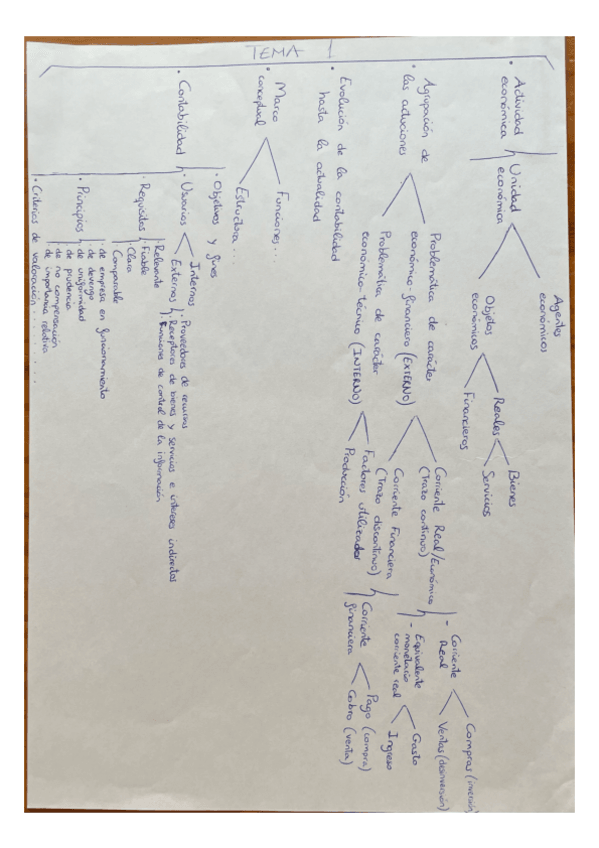 TEMA 1
· Actividad
económica
Unidad
económica
Agentes
económicos
Objetos
económicos
Reales
Bienes
Servicios
Financieros
· Agrupación de
las actuaciones
Problemática de carácter
económico-financiero (EXTERNO)
Corriente Real/Económica
(Trazo continuo)
- Corriente
Real
Compras (inversión)
Ventas (desinversión)
- Equivalente
monetario
corriente real
Gasto
Ingreso
Corriente Financiera
(Trazo discontinuo)
Corriente
financiera
Pago (compra)
Cobro (venta)
Problemática de carácter
económico-técnico (INTERNO)
Factores utilizador
Producción
· Evolución de la contabilidad
hasta la actualidad
· Marco
conceptual
Funciones...
Estructura...
· Contabilidad
· Objetivos y fines
· Usuarios
Internos
Externos
· Proveedores de recursos
· Receptores de bienes y servicios e intereses indirectos
· Funciones de control de la información
· Requisitos
Relevante
Fiable
Clara
Comparable
· Principios
· de empresa en funcionamiento
· de devengo
· de uniformidad
· de prudencia
· de no compensación
· de importancia relativa
· Criterios de valoración..........